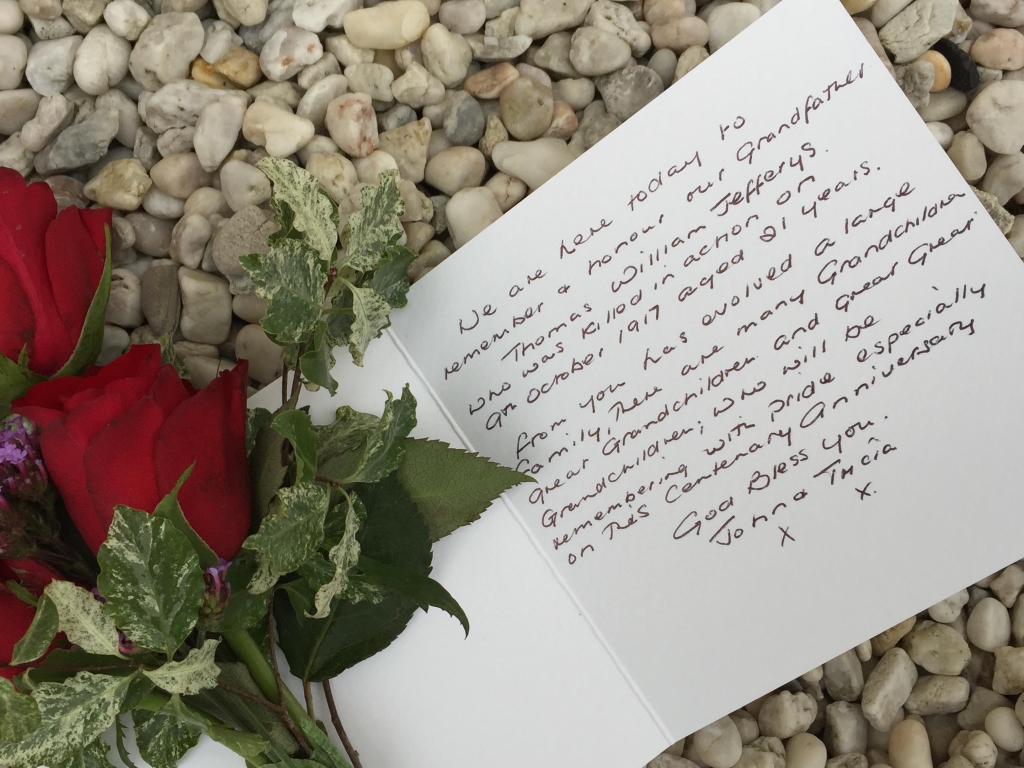 We are here today to
remember & honour our Grandfather
Thomas William Jefferys.
who was killed in action on
9th October 1917 aged 21 years.
From you has evolved a large
family, There are many Grandchildren
Great Grandchildren and Great Great
Grandchildren; who will be
remembering with pride especially
on this Centenary Anniversary
God Bless you.
John & Tricia
x x.